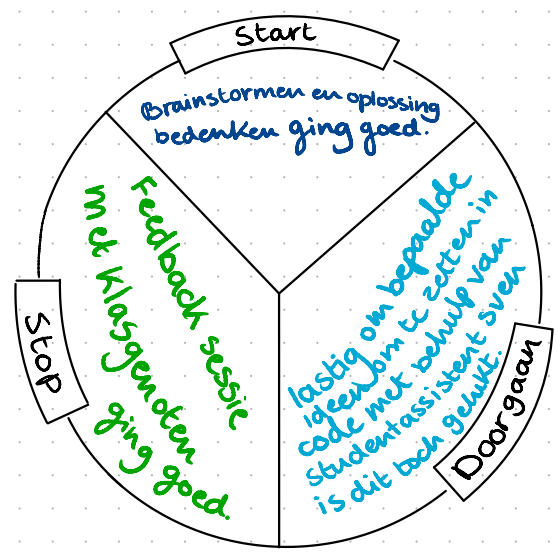 Start
Brainstormen en oplossing
bedenken ging goed.
Stop
Feedback sessie
met klasgenoten
ging goed.
Doorgaan
lastig om bepaalde
ideen om te zetten in
code met behulp van
studentassistent sven
is dit toch gelukt.